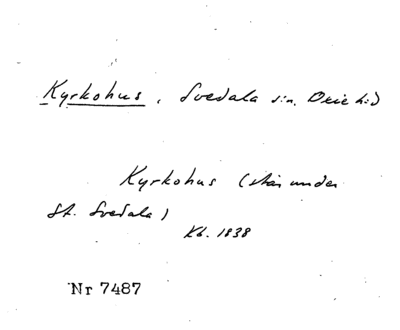 Kyrkohus, Svedala sn. Oxie hd
Kyrkohus (står under
St. Svedala)
Kb. 1838
Nr 7487